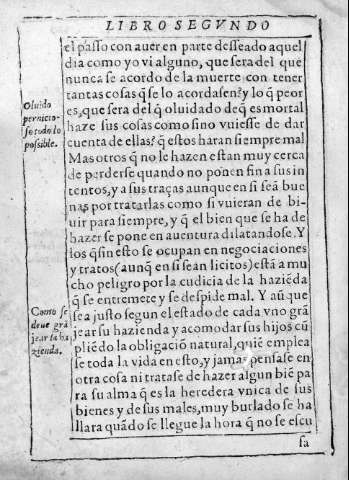 LIBRO SEGVNDO
el passo con auer en parte desseado aquel
dia como yo vi alguno, que sera del que
nunca se acordo de la muerte con tener
tantas cosas q̃ se lo acordasen? y lo q̃ peor
es, que sera del q̃ oluidado de q̃ es mortal
haze sus cosas como sino vuiesse de dar
cuenta de ellas? q̃ estos haran siempre mal
Mas otros q̃ no le hazen estan muy cerca
de perderse quando no ponen fin a sus in
tentos, y a sus traças aunque en siseã bue
nas por tratarlas como si vuieran de bi-
uir para siempre, y q̃ el bien que se ha de
hazer se pone en auentura dilatandose. Y
los q̃sin esto se ocupan en negociaciones
y tratos (aunq̃ en si sean licitos) estã a mu
cho peligro por la cudicia de la haziẽda
q̃ se entremete y se despide mal. Y aũ que
sea justo segun el estado de cada vno grã
jear su hazienda y acomodar sus hijos cũ
pliẽdo la obligaciõ natural, quiẽ emplea
se toda la vida en esto, y jamas pensase en
otra cosa ni tratase de hazer algun biẽ pa
ra su alma q̃ es la heredera vnica de sus
bienes y de sus males, muy burlado se ha
llara quãdo se llegue la hora q̃ no se escu
sa
Oluido
pernicio-
so todo lo
possible.
Como se
deue grã
jear la ha
zienda.